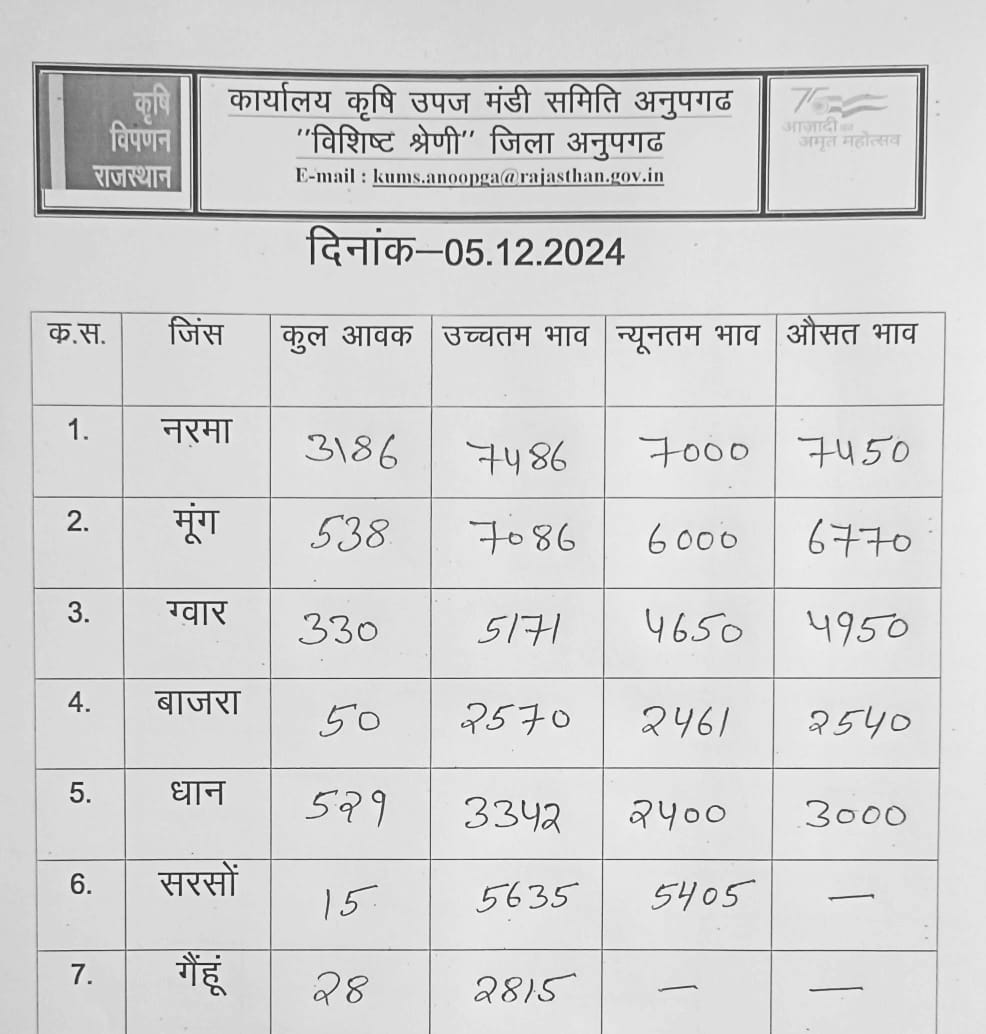 कृषि
विपणन
राजस्थान
कार्यालय कृषि उपज मंडी समिति अनुपगढ
''विशिष्ट श्रेणी'' जिला अनुपगढ
E-mail : kums.anoopga@rajasthan.gov.in
75
आज़ादी का
अमृत महोत्सव
दिनांक–05.12.2024
क.स. जिंस कुल आवक उच्चतम भाव न्यूनतम भाव औसत भाव
1. नरमा 3186 7486 7000 7450
2. मूंग 538 7086 6000 6770
3. ग्वार 330 5171 4650 4950
4. बाजरा 50 2570 2461 2540
5. धान 529 3342 2400 3000
6. सरसों 15 5635 5405 —
7. गैंहूं 28 2815 — —